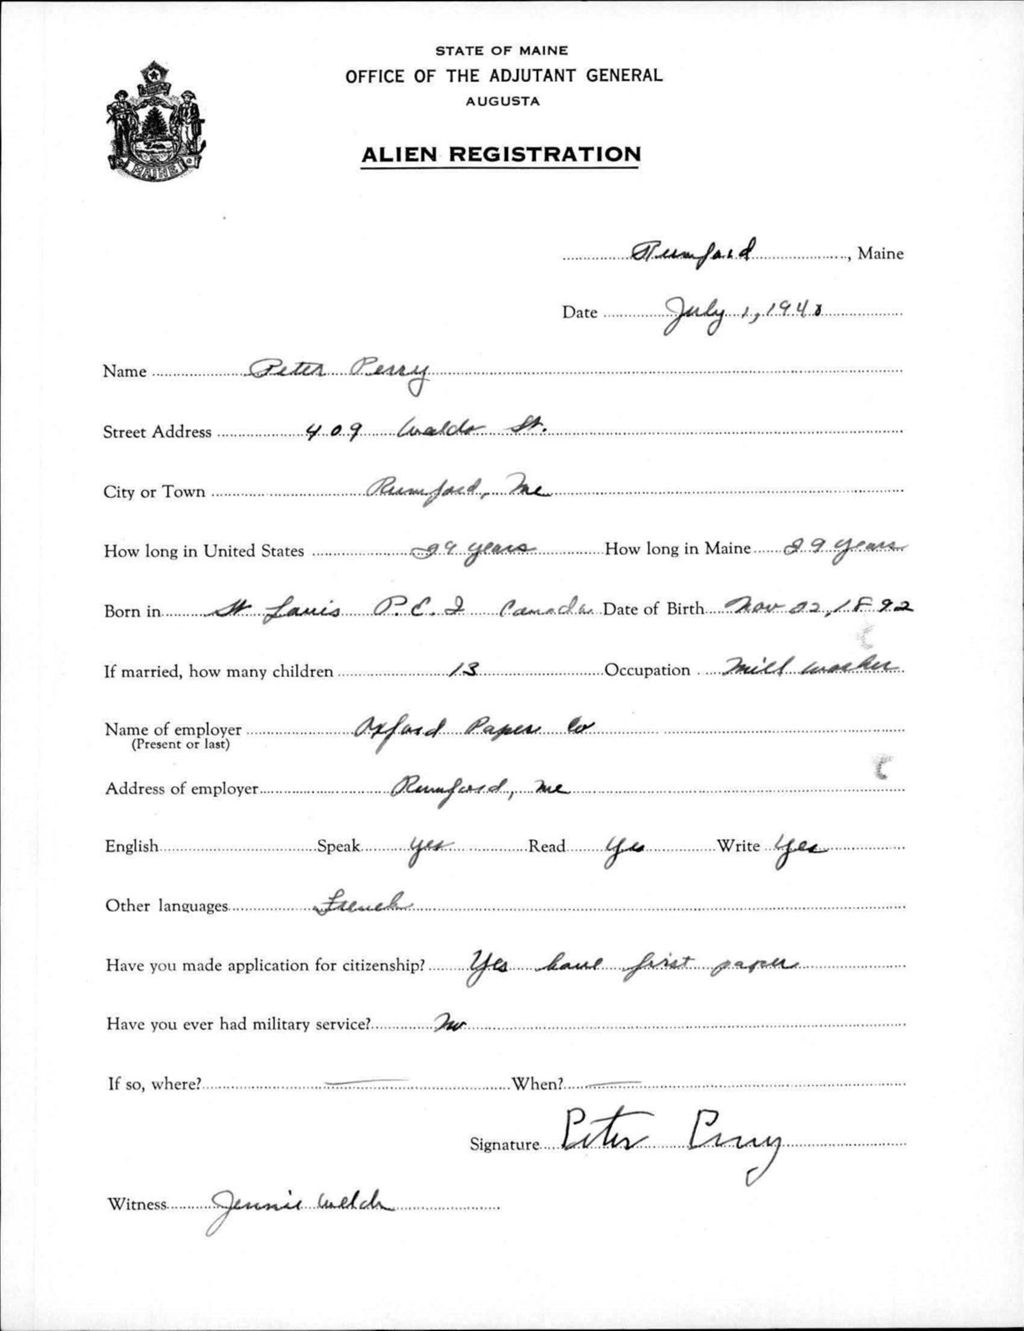 STATE OF MAINE
OFFICE OF THE ADJUTANT GENERAL
AUGUSTA
ALIEN REGISTRATION
MAINE
Rumford, Maine
Date July 1, 1940
Name Peter Perry
Street Address 409 Waldo St.
City or Town Rumford, Me
How long in United States 29 years How long in Maine 29 years
Born in St Louis P.E.I Canada Date of Birth Nov 22, 1892
If married, how many children 13 Occupation Mill worker
Name of employer Oxford Paper Co
(Present or last)
Address of employer Rumford, Me
English Speak Yes Read Yes Write Yes
Other languages French
Have you made application for citizenship? Yes have first paper
Have you ever had military service? No
If so, where? When?
Signature Peter Perry
Witness Jennie Welch